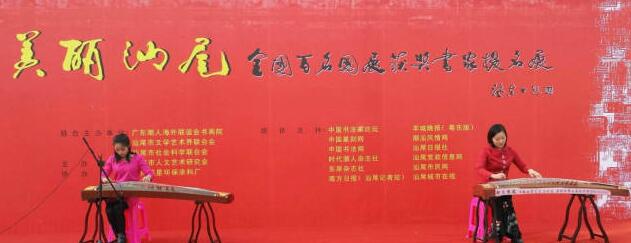 美丽汕尾 全国百名国展获奖书家提名展
广东潮人海外联谊会书画院
汕尾市文学艺术界联合会
汕尾市社会科学联合会
市人文艺术研究会
星环保涂料厂
媒体支持
中国书法家论坛
中国篆刻网
中国书法网
时代潮人杂志社
东岸杂志社
南方日报(汕尾记者站)
羊城晚报(粤东版)
潮汕风情网
汕尾日报社
汕尾党政信息网
汕尾市民网
汕尾城市在线